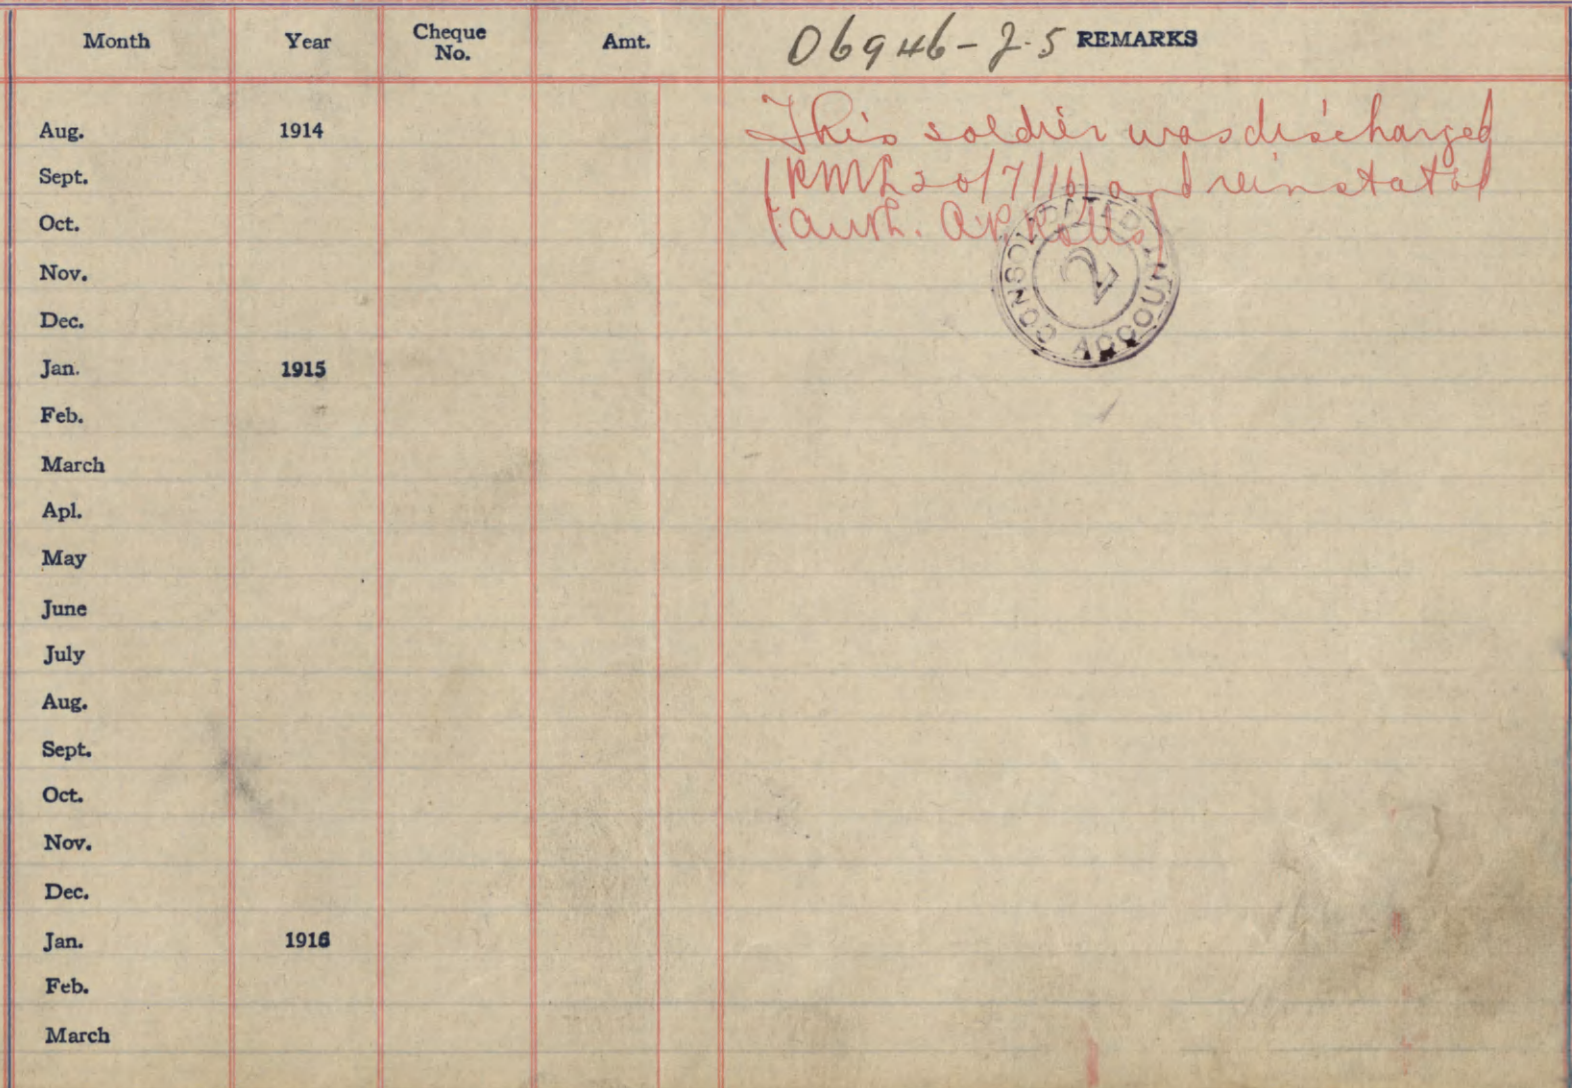 Month Year Cheque No. Amt. 06946-J-5 REMARKS
Aug. 1914 This soldier was discharged
Sept. (RML 20/7/16) and reinstated
Oct. (auth. AR Rolls)
CONSOLIDATED ACCOUNT 2
Nov.
Dec.
Jan. 1915
Feb.
March
Apl.
May
June
July
Aug.
Sept.
Oct.
Nov.
Dec.
Jan. 1916
Feb.
March